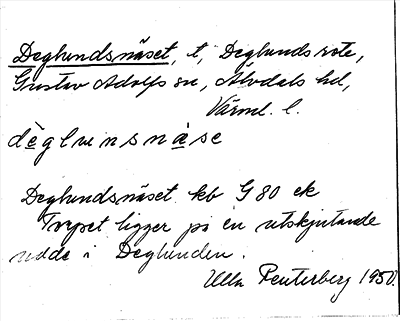 Deglundsnäset, t, Deglunds rote,
Gustav Adolfs sn, Älvdals hd,
Värml. l.
dèglunsnàse
Deglundsnäset kb G 80 ek
Torpet ligger på en utskjutande
udde i Deglunden.
Ulla Reuterberg 1950.